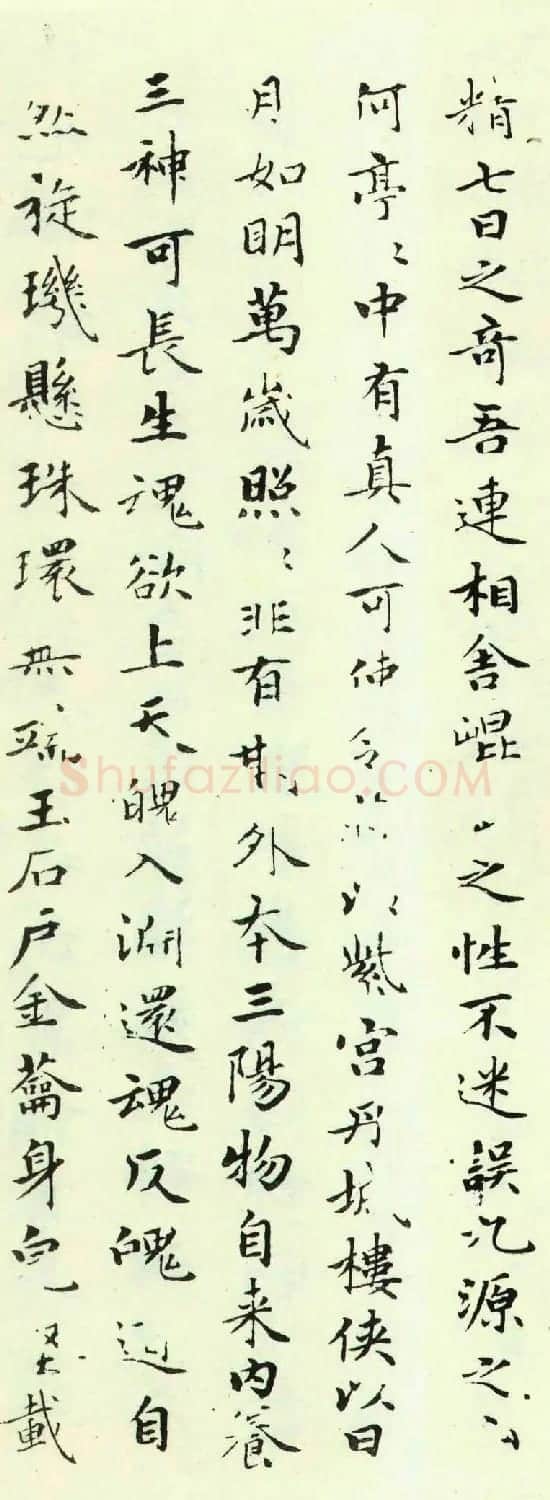 精七日之奇吾連相舍崐之性不迷誤九源之山
何亭〻中有真人可使令以紫宮丹城樓俠以日
月如明萬歲照〻非有期外本三陽物自来内養
三神可長生魂欲上天魄入淵還魂反魄道自
然旋璣懸珠環無端玉石户金籥身完堅載
Shufaziliao.COM